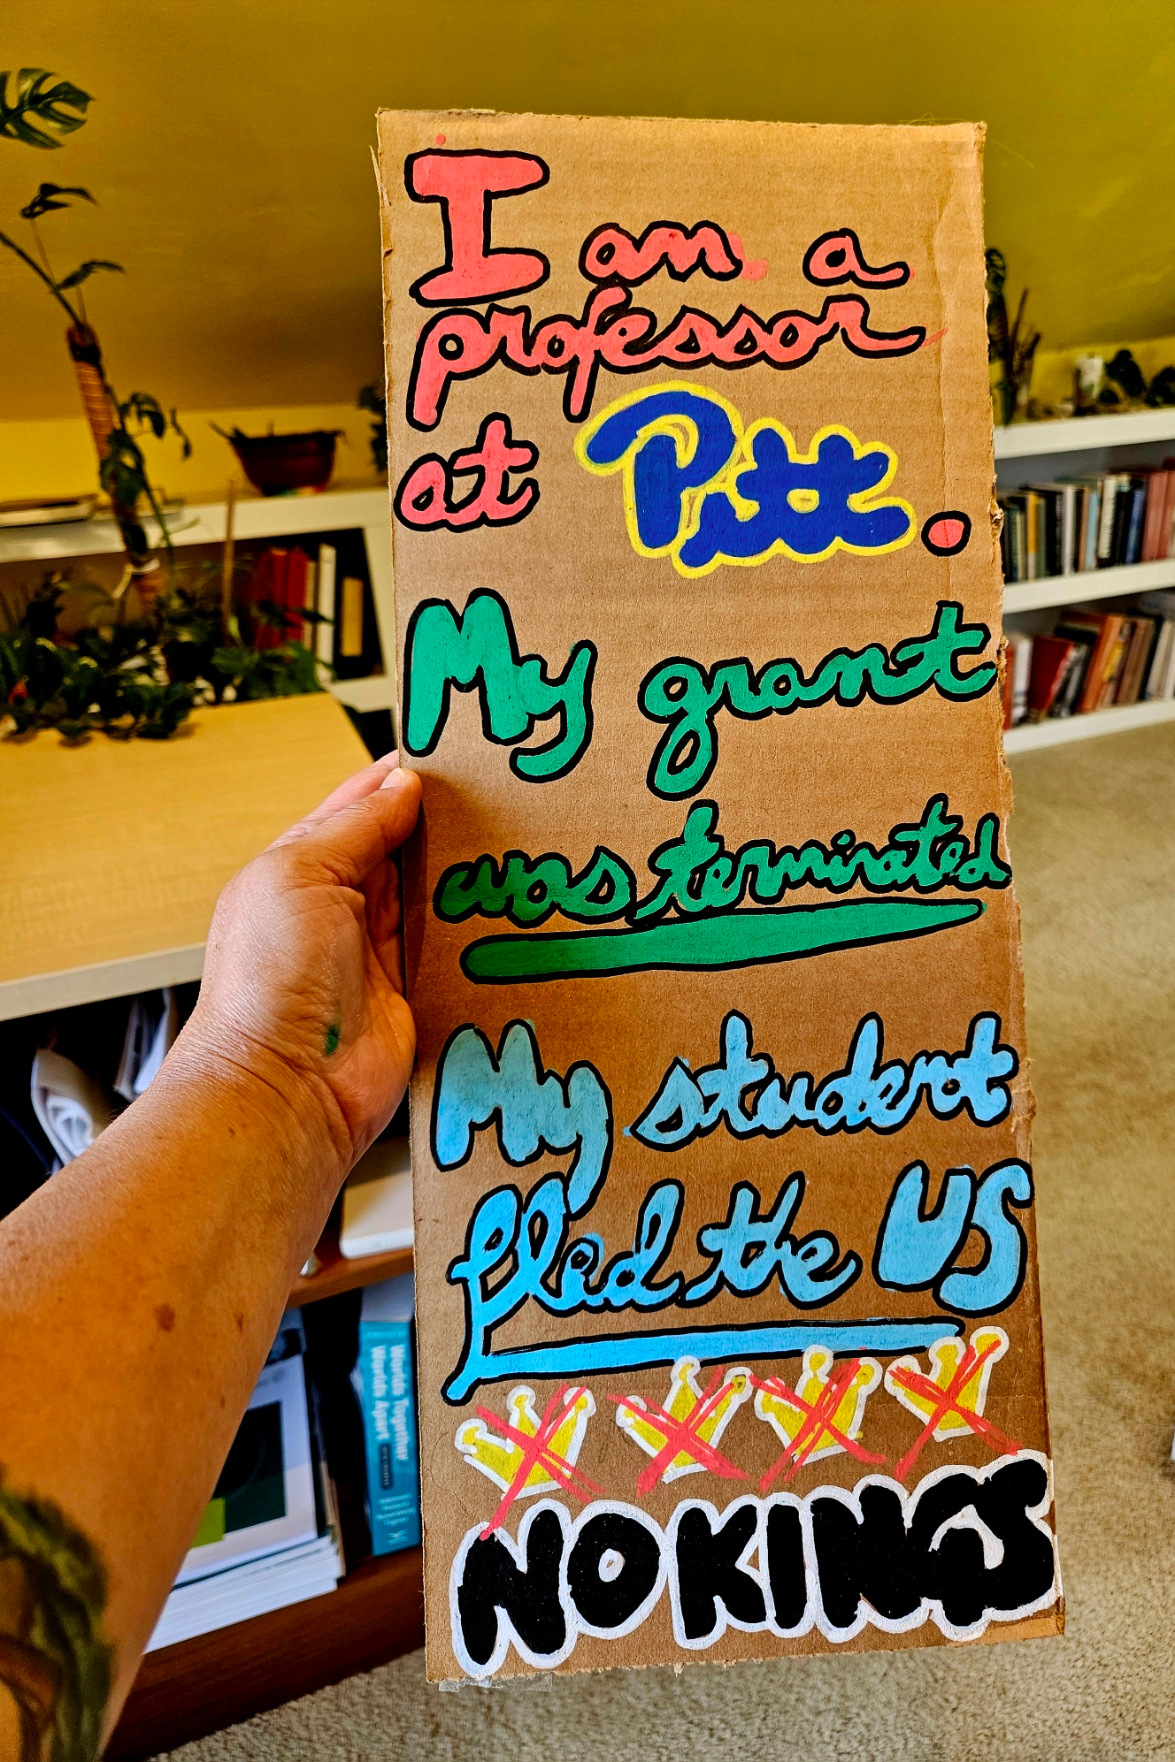 I am a
professor
at Pitt.
My grant
was terminated
My student
fled the US
NO KINGS
Worlds Together
Worlds Apart